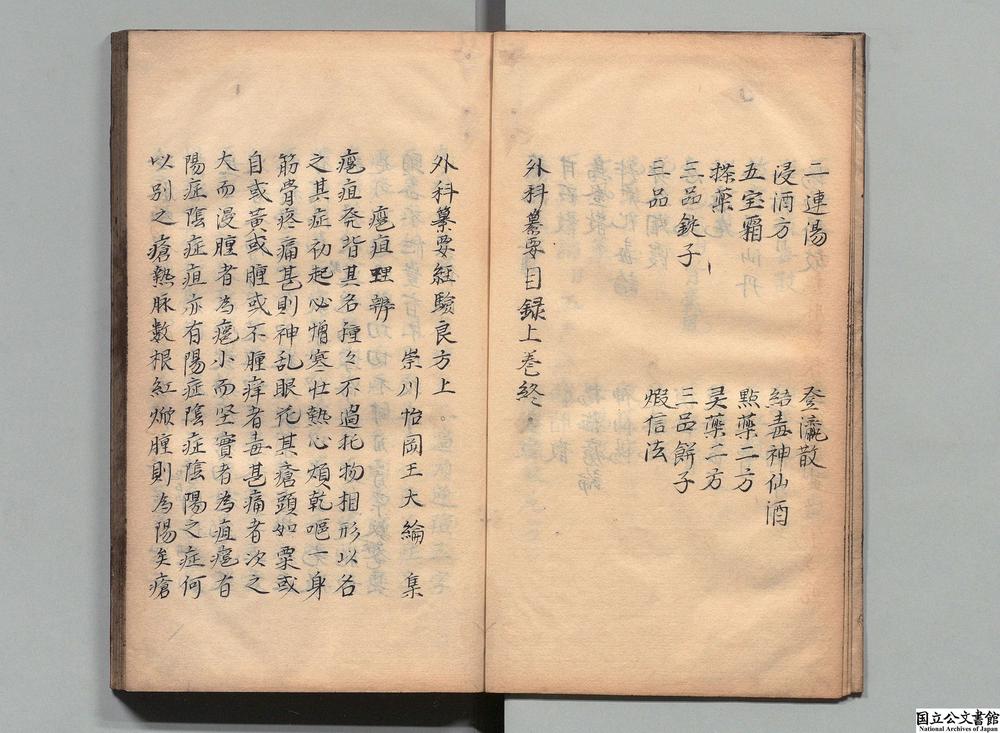 二連湯　登瀛散
浸酒方　結毒神仙酒
五宝霜　點藥二方
搽藥　灵藥二方
三品銚子　三品餅子
三品　煆信法
外科纂要目録上巻終
外科纂要経驗良方上
崇川怡岡王大綸　集
癰疽理辨
癰疽発背其名種々不過托物相形以名
之其症初起必憎寒壮熱心煩乾嘔一身
筋骨疼痛甚則神乱眼花其瘡頭如粟或
自或黄或腫或不腫痒者毒甚痛者次之
大而漫腫者為癰小而坚實者為疽癰有
陽症陰症疽亦有陽症陰症陰陽之症何
以别之瘡熱脉數根紅焮腫則為陽矣瘡
国立公文書館
National Archives of Japan